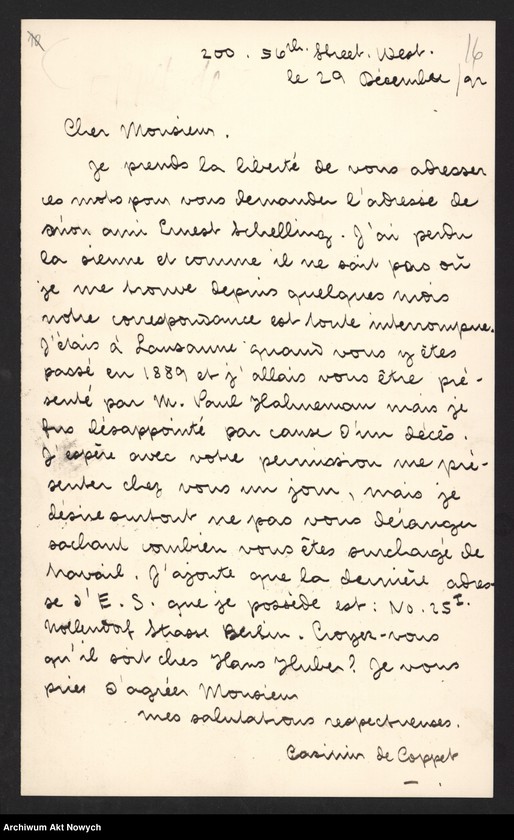 16
200. 56th. Street. West.
le 29 Décember /92
Cher Monsieur.
Je prends la liberté de vous adresser
ces mots pour vous demander l'adresse de
mon ami Ernest Schelling. J'ai perdu
la sienne et comme il ne sait pas où
je me trouve depuis quelques mois
notre correspondance est toute interrompue.
J'étais à Lausanne quand vous y êtes
passé en 1889 et j'allais vous être pré-
senté par M. Paul Hahneman mais je
fus désappointé par cause d'un décès.
J'espère avec votre permission me pré-
senter chez vous un jour, mais je
désire surtout ne pas vous déranger
sachant combien vous êtes surchargé de
travail. J'ajoute que la dernière adres-
se d'E. S. que je possède est: No. 25 I.
Nollendorf Strasse Berlin. Croyez-vous
qu'il soit chez Hans Huber? Je vous
pries d'agréer Monsieur
mes salutations respectueuses.
Casimir de Coppet
Archiwum Akt Nowych